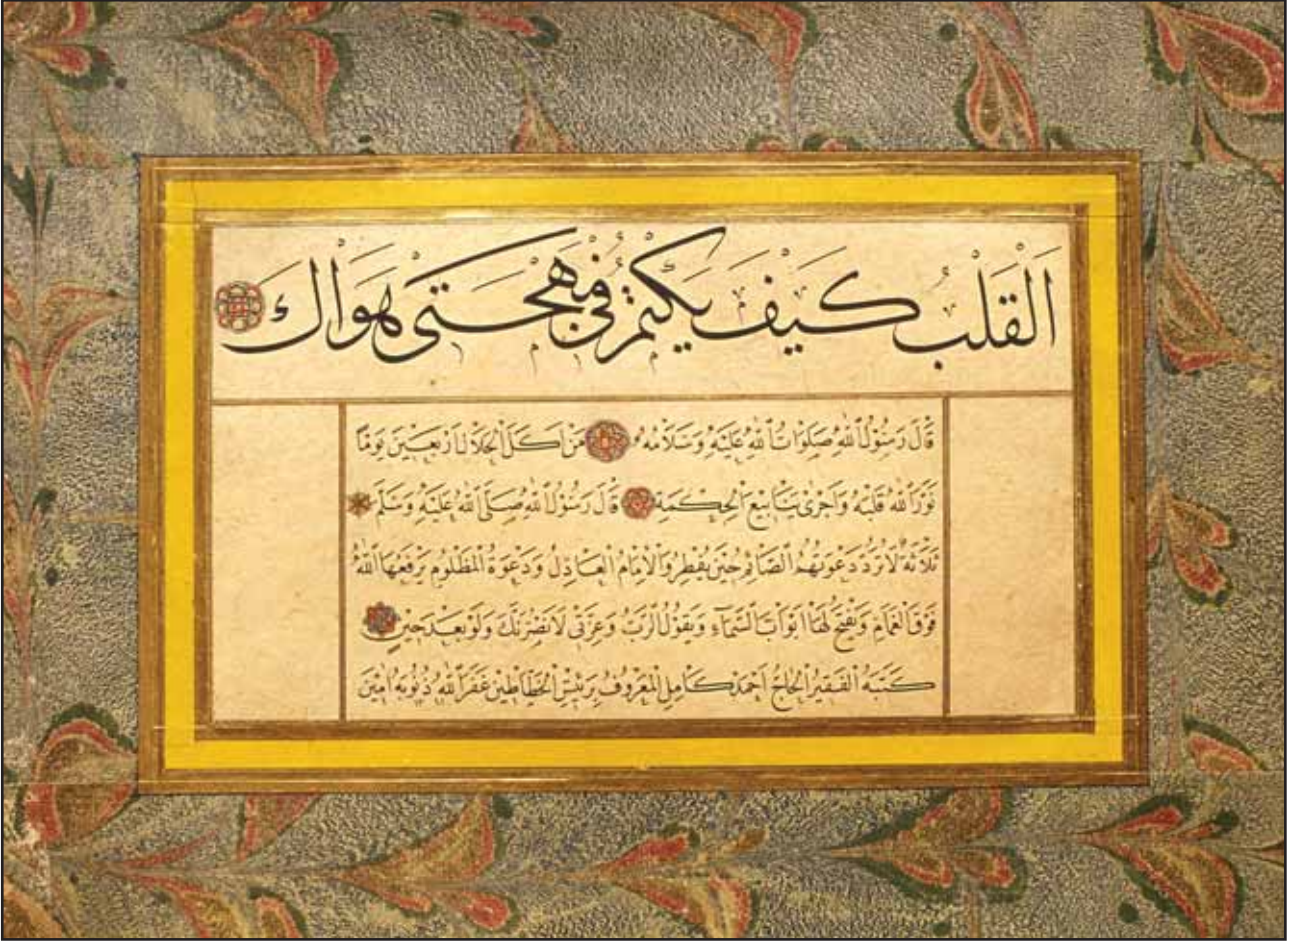 اَلْقَلْبُ كَيْفَ يَكْتُمُ فِي مُهْجَتِي هَوَاكَ
قَالَ رَسُوْلُ اللهِ صَلَوَاتُ اللهِ عَلَيْهِ وَسَلَامُهُ مَنْ اَكَلَ الْحَلَالَ اَرْبَعِيْنَ يَوْمًا
نَوَّرَ اللهُ قَلْبَهُ وَاَجْرٰى يَنَابِيْعَ الْحِكْمَةِ قَالَ رَسُوْلُ اللهِ صَلَّى اللهُ عَلَيْهِ وَسَلَّمَ
ثَلَاثَةٌ لَا تُرَدُّ دَعْوَتُهُمْ الصَّائِمُ حِيْنَ يُفْطِرُ وَالْاِمَامُ الْعَادِلُ وَدَعْوَةُ الْمَظْلُوْمِ يَرْفَعُهَا اللهُ
فَوْقَ الْغَمَامِ وَيَفْتَحُ لَهَا اَبْوَابَ السَّمَاءِ وَيَقُوْلُ الرَّبُّ وَعِزَّتِيْ لَاَنْصُرَنَّكَ وَلَوْ بَعْدَ حِيْنٍ
كَتَبَهُ الْفَقِيْرُ الْحَاجُّ اَحْمَدْ كَامِلِ الْمَعْرُوْفُ بِرَئِيْسِ الْخَطَّاطِيْنَ غَفَرَ اللهُ ذُنُوْبَهُ اٰمِيْنَ